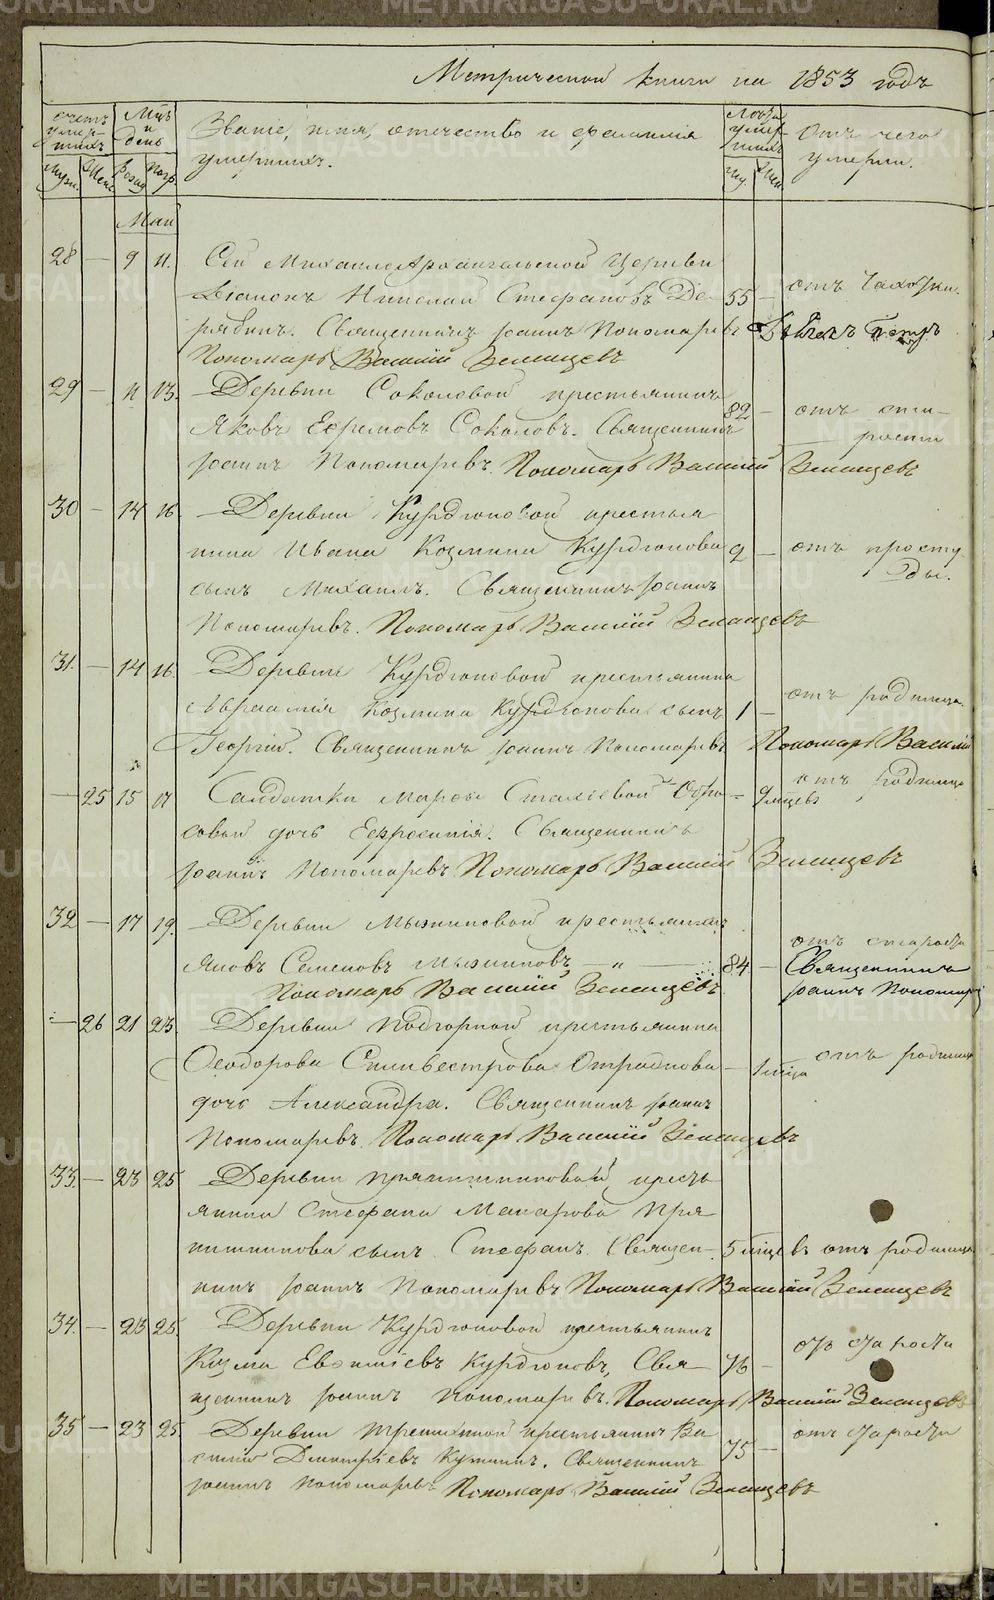 Метрической книги на 1853 годъ
счетъ умершихъ
Мѣс. и день
Званіе, имя, отчество и фамилія умершихъ.
Лѣта умершихъ
Отъ чего умерли.
Муж. Жен. Погр.
Май
28 — 9 11. Сей Михаило Архангельской Церкви
Діаконъ Николай Стефановъ Де- 55 — отъ чахотки.
рябинъ. Священникъ Іоаннъ Пономаревъ
Пономарь Василій Зеленцевъ
29 — 11 13. Деревни Соколовой крестьянинъ
Яковъ Ефремовъ Соколовъ. Священникъ 82 — отъ ста-
рости
Іоаннъ Пономаревъ. Пономарь Василій Зеленцевъ
30 — 14 16 Деревни Курдюковой крестья-
нина Ивана Козмина Курдюкова 2 — отъ просту-
ды.
сынъ Михаилъ. Священникъ Іоаннъ
Пономаревъ. Пономарь Василій Зеленцевъ
31. — 14 16. Деревни Курдюковой крестьянина
Авраамія Козмина Курдюкова сынъ 1 — отъ родимца.
Георгій. Священникъ Іоаннъ Пономаревъ Пономарь Василій
— 25 15 17 Салдатки Марфы отъ родимца
совой дочь Ефросинія. Священникъ
Іоаннъ Пономаревъ Пономарь Василій Зеленцевъ
32 — 17 19. Деревни крестьянинъ
Яковъ Семеновъ — „ — 84 — отъ старости
Священникъ
Іоаннъ Пономарев
Пономарь Василій Зеленцевъ.
— 26 21 23 Деревни Подгорной крестьянина
Ѳеодорова Сильвестрова Отраднова — 1 мѣсца отъ родимца
дочь Александра. Священникъ Іоаннъ
Пономаревъ. Пономарь Василій Зеленцевъ
33. — 23 25 Деревни Пряничниковой кресть
янина Стефана Макарова Пря
ничникова сынъ Стефанъ. Священ- 5 мѣсцевъ отъ родимца
никъ Іоаннъ Пономаревъ Пономарь Василій Зеленцевъ
34. — 23 25. Деревни Курдюковой крестьянинъ
Козма Евѳиміевъ Курдюковъ, Свя- 76 — отъ старости
щенникъ Іоаннъ Пономаревъ. Пономарь Василій Зеленцевъ
35 — 23 25. Деревни крестьянинъ Ва
силій Дмитріевъ Священникъ 75 — отъ старости
Іоаннъ Пономаревъ Пономарь Василій Зеленцевъ
METRIKI.GASO-URAL.RU